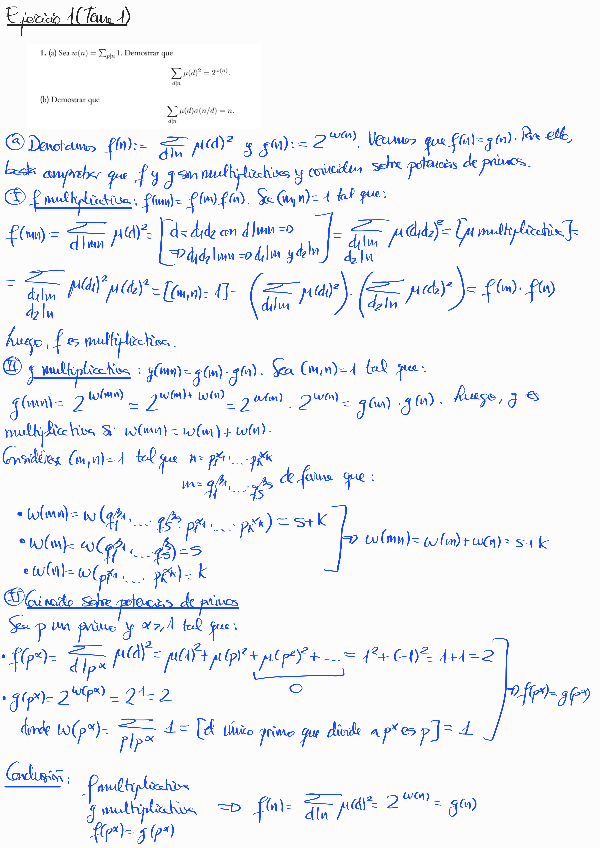 Ejercicio 1 (Tema 1)
1. (a) Sea w(n) = ∑_{p|n} 1. Demostrar que
∑_{d|n} μ(d)² = 2^{w(n)}.
(b) Demostrar que
∑_{d|n} μ(d)σ(n/d) = n.
(a) Denotamos f(n):= ∑_{d|n} μ(d)² y g(n):= 2^{w(n)}. Veamos que f(n)=g(n). Para ello,
basta comprobar que f y g son multiplicativas y coinciden sobre potencias de primos.
(I) f multiplicativa: f(mn)=f(m)·f(n). Sea (m,n)=1 tal que:
f(mn)= ∑_{d|mn} μ(d)² = [d=d₁d₂ con d|mn ⇒ ⇒ d₁d₂|mn ⇒ d₁|m y d₂|n] = ∑_{d₁|m d₂|n} μ(d₁d₂)² = [μ multiplicativa] =
= ∑_{d₁|m d₂|n} μ(d₁)² μ(d₂)² = [(m,n)=1] = (∑_{d₁|m} μ(d₁)²) · (∑_{d₂|n} μ(d₂)²) = f(m)·f(n)
Luego, f es multiplicativa.
(II) g multiplicativa: g(mn)=g(m)·g(n). Sea (m,n)=1 tal que:
g(mn)= 2^{w(mn)} = 2^{w(m)+w(n)} = 2^{w(m)} · 2^{w(n)} = g(m)·g(n). Luego, g es
multiplicativa si w(mn)=w(m)+w(n).
Considérese (m,n)=1 tal que n=p₁^{α₁}.....p_k^{α_k}
m=q₁^{β₁}.....q_s^{β_s} de forma que:
• w(mn)= w(q₁^{β₁}.....q_s^{β_s}·p₁^{α₁}.....p_k^{α_k}) = s+k
• w(m)= w(q₁^{β₁}.....q_s^{β_s})=s ⇒ w(mn)=w(m)+w(n)=s+k
• w(n)= w(p₁^{α₁}.....p_k^{α_k})=k
(III) Coinciden sobre potencias de primos
Sea p un primo y α≥1 tal que:
• f(p^α)= ∑_{d|p^α} μ(d)² = μ(1)²+μ(p)²+μ(p²)²+... = 1²+(-1)² = 1+1=2
0
⇒ f(p^α)=g(p^α)
• g(p^α)= 2^{w(p^α)} = 2¹ = 2
donde w(p^α)= ∑_{p|p^α} 1 = [el único primo que divide a p^α es p] = 1
Conclusión:
f multiplicativa
g multiplicativa ⇒ f(n)= ∑_{d|n} μ(d)² = 2^{w(n)} = g(n)
f(p^α)=g(p^α)